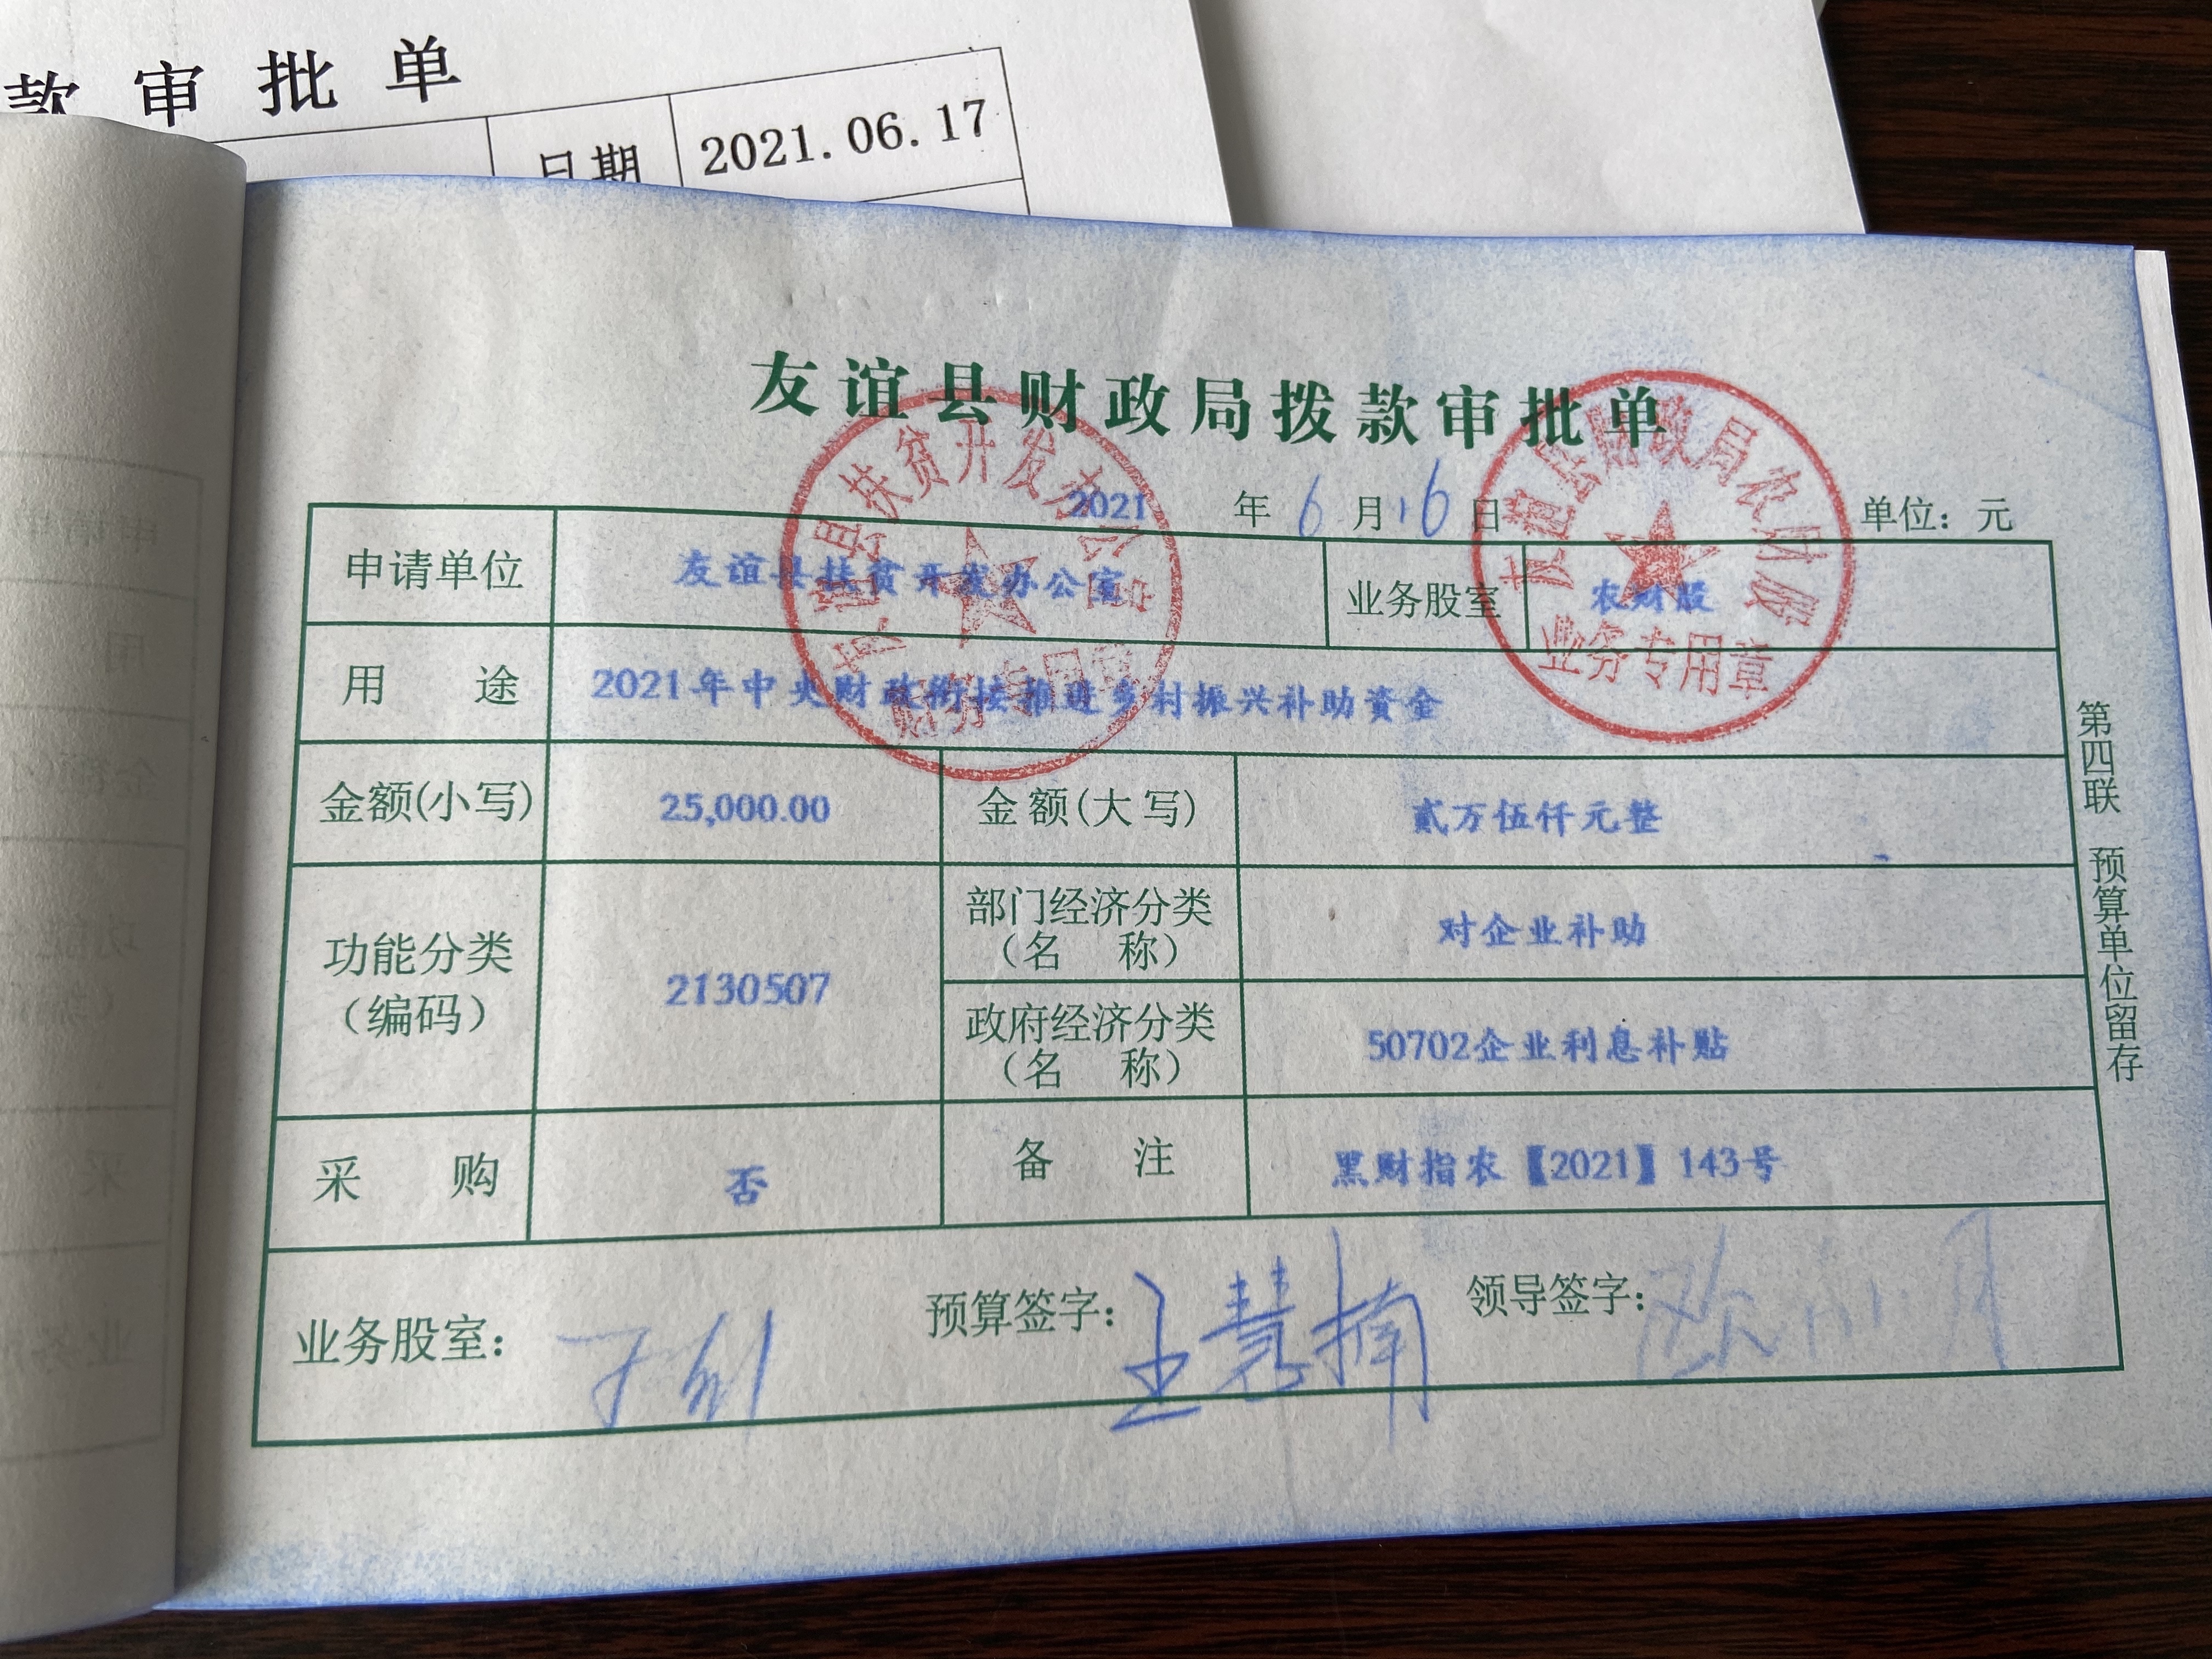 款审批单
日期 2021.06.17
友谊县财政局拨款审批单
2021 年 6 月 16 日 单位：元
申请单位 友谊县扶贫开发办公室 业务股室 农财股
用途 2021年中央财政衔接推进乡村振兴补助资金
金额(小写) 25,000.00 金额(大写) 贰万伍仟元整
功能分类（编码） 2130507
部门经济分类（名称） 对企业补助
政府经济分类（名称） 50702企业利息补贴
采购 否 备注 黑财指农【2021】143号
业务股室：
预算签字：王慧楠
领导签字：
第四联 预算单位留存
友谊县扶贫开发办公室
财务专用章
友谊县财政局农财股
业务专用章